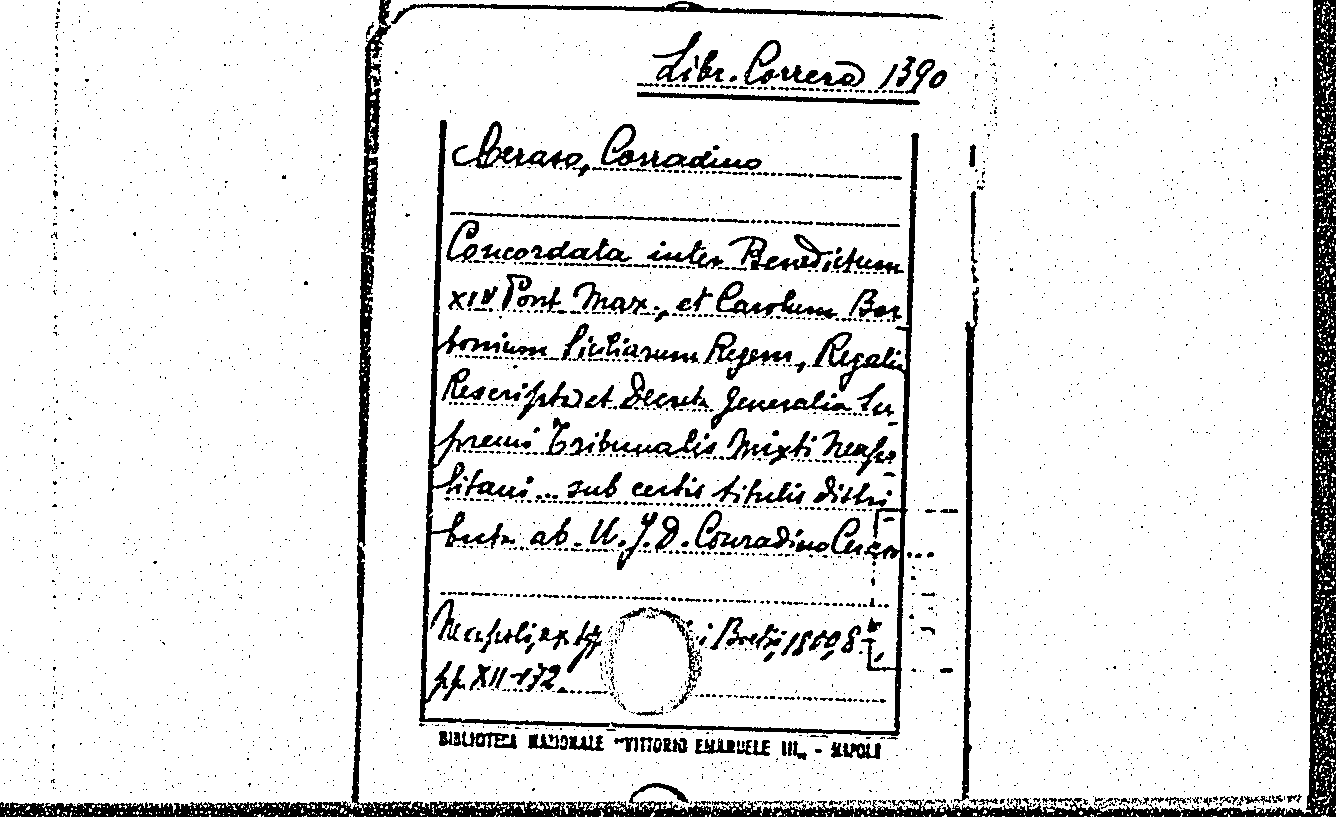 Libr. Correra 1390
Ceraso, Corradino
Concordata inter Benedictum
XIV Pont. Max., et Carolum Bor
bonium Siciliarum Regem, Regalia
Rescripta et Decreta Generalia Su-
premi Tribunalis Mixti Neapo-
litani... sub certis titulis distri-
buta ab U. J. D. Conradino Ceraso...
Neapoli, ex typ. 1800, 8º,
pp. XII-172.
BIBLIOTECA NAZIONALE "VITTORIO EMANUELE III„ - NAPOLI